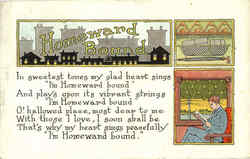 Homeward
Bound
In sweetest tones my glad heart sings
"I'm Homeward bound
And plays upon its vibrant strings
I'm Homeward bound
O! hallowed place, most dear to me
With those I love, I soon shall be
That's why my heart sings peacefully
"I'm Homeward bound."